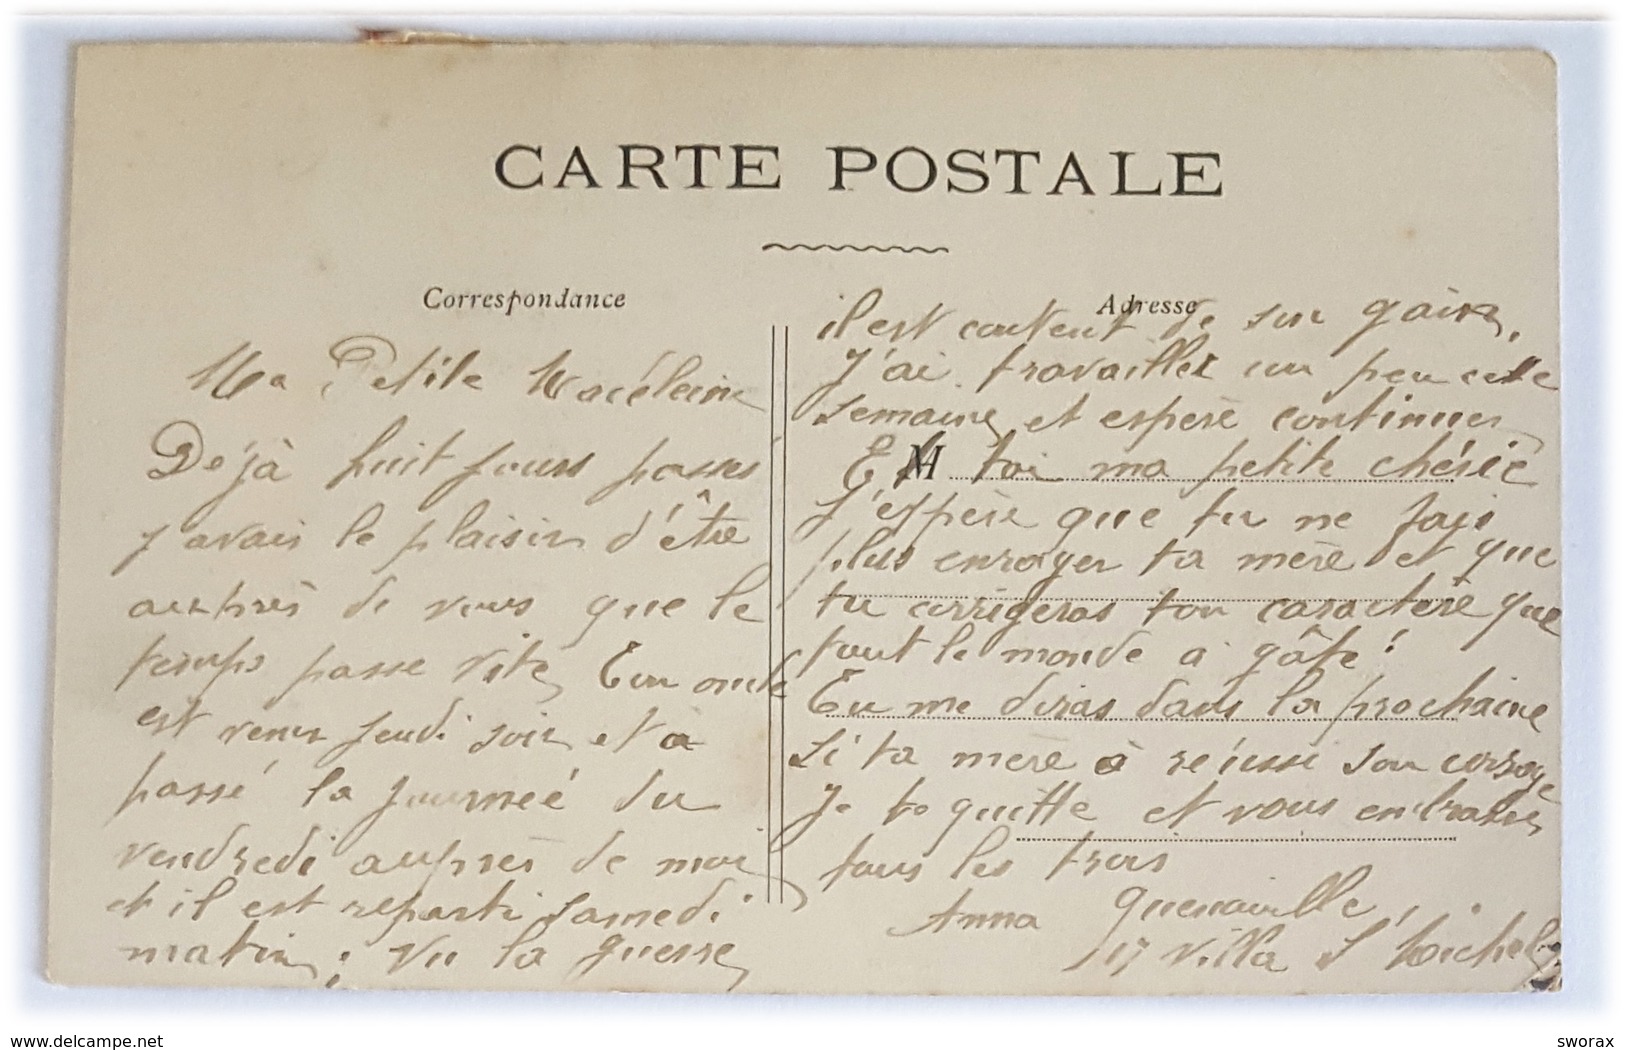 CARTE POSTALE
Correspondance
Ma Petite Madeleine
Déjà huit jours passés
j'avais le plaisir d'être
auprès de vous que le
temps passe vite, Ton oncle
est venu jeudi soir et à
passé la journeé du
vendredi auprès de moi
et il est reparti samedi
matin; Vu la guerre
Adresse
il est content de son gain,
J'ai travaillé un peu cette
semaine et espère continuer
M
Et toi ma petite chérie
j'espère que tu ne fais
plus enrager ta mère et que
tu corrigeras ton caractère que
tout le monde a gâté!
Tu me diras dans la prochaine
si ta mère à réussi son corsage
Je te quitte et vous embrasse
tous les trois
Anna
17 villa St Michel
www.delcampe.net
sworax